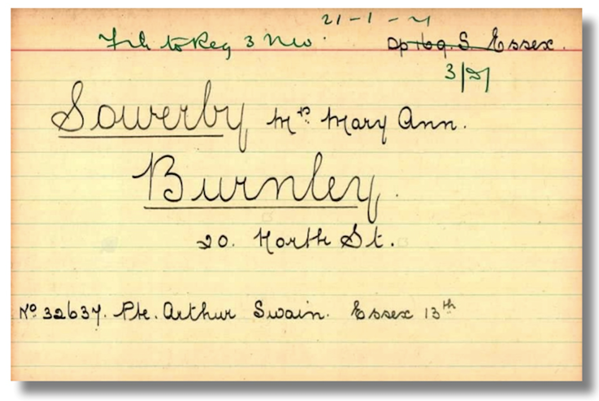 21-1-21
File to Reg 3 NW. Op 169. S. Essex.
3/21
Sowerby Mrs Mary Ann.
Burnley.
20. North St.
No 32637. Pte. Arthur Swain. Essex 13th